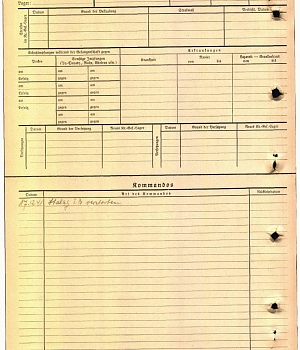 Lager:
Datum Grund der Bestrafung Strafmaß Verbüßt, Datum
Schutzimpfungen während der Gefangenschaft gegen Erkrankungen
Pocken Sonstige Impfungen
(Ty.-Paraty., Ruhr, Cholera usw.) Krankheit Revier Lazarett — Krankenhaus
von bis von bis
am am
Erfolg gegen
am am
Erfolg gegen
am am
Erfolg gegen
am am
Erfolg gegen
Datum Grund der Versetzung Neues Kr.-Gef.-Lager Datum Grund der Versetzung Neues Kr.-Gef.-Lager
Versetzungen
Kommandos
Datum Art des Kommandos Rückkehrdatum
Stalag verstorben